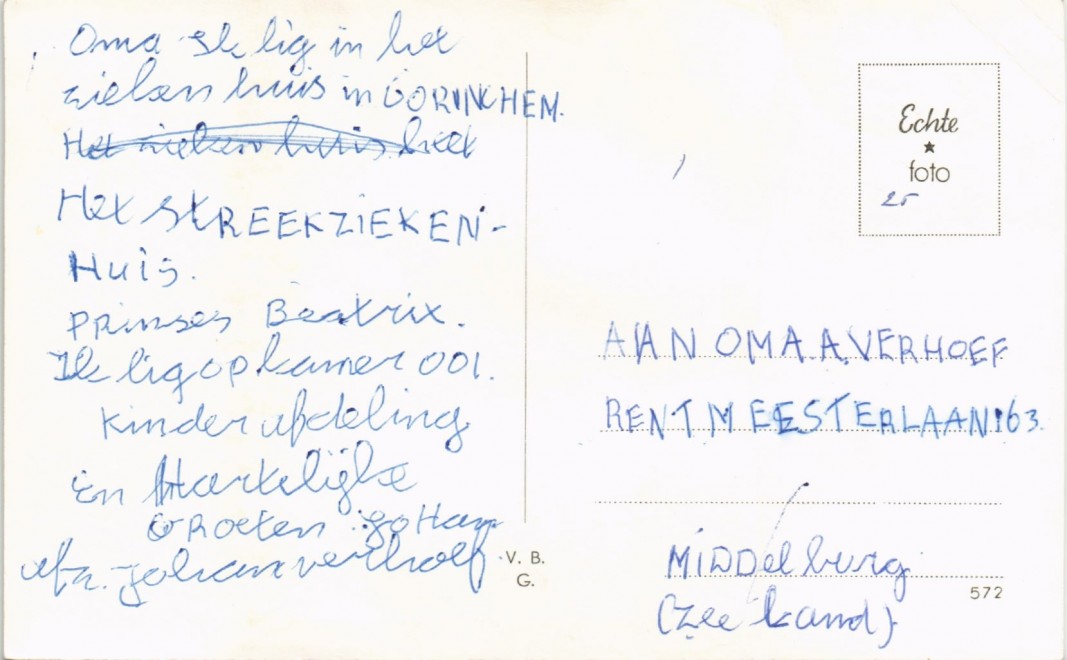 Oma ik lig in het
zieken huis in GORINCHEM.
Het zieken huis heet
Het StREEKZIEKEN-
Huis.
PRinses Beatrix.
Ik lig op kamer 001.
Kinder afdeling
en Hartelijke
GROeten Johan
afz. Johan verhoef
V. B.
G.
Echte
foto
25
AAN OMA A.VERHOEF
RENTMEESTERLAAN 163.
MiDDelburg
(zeeland)
572